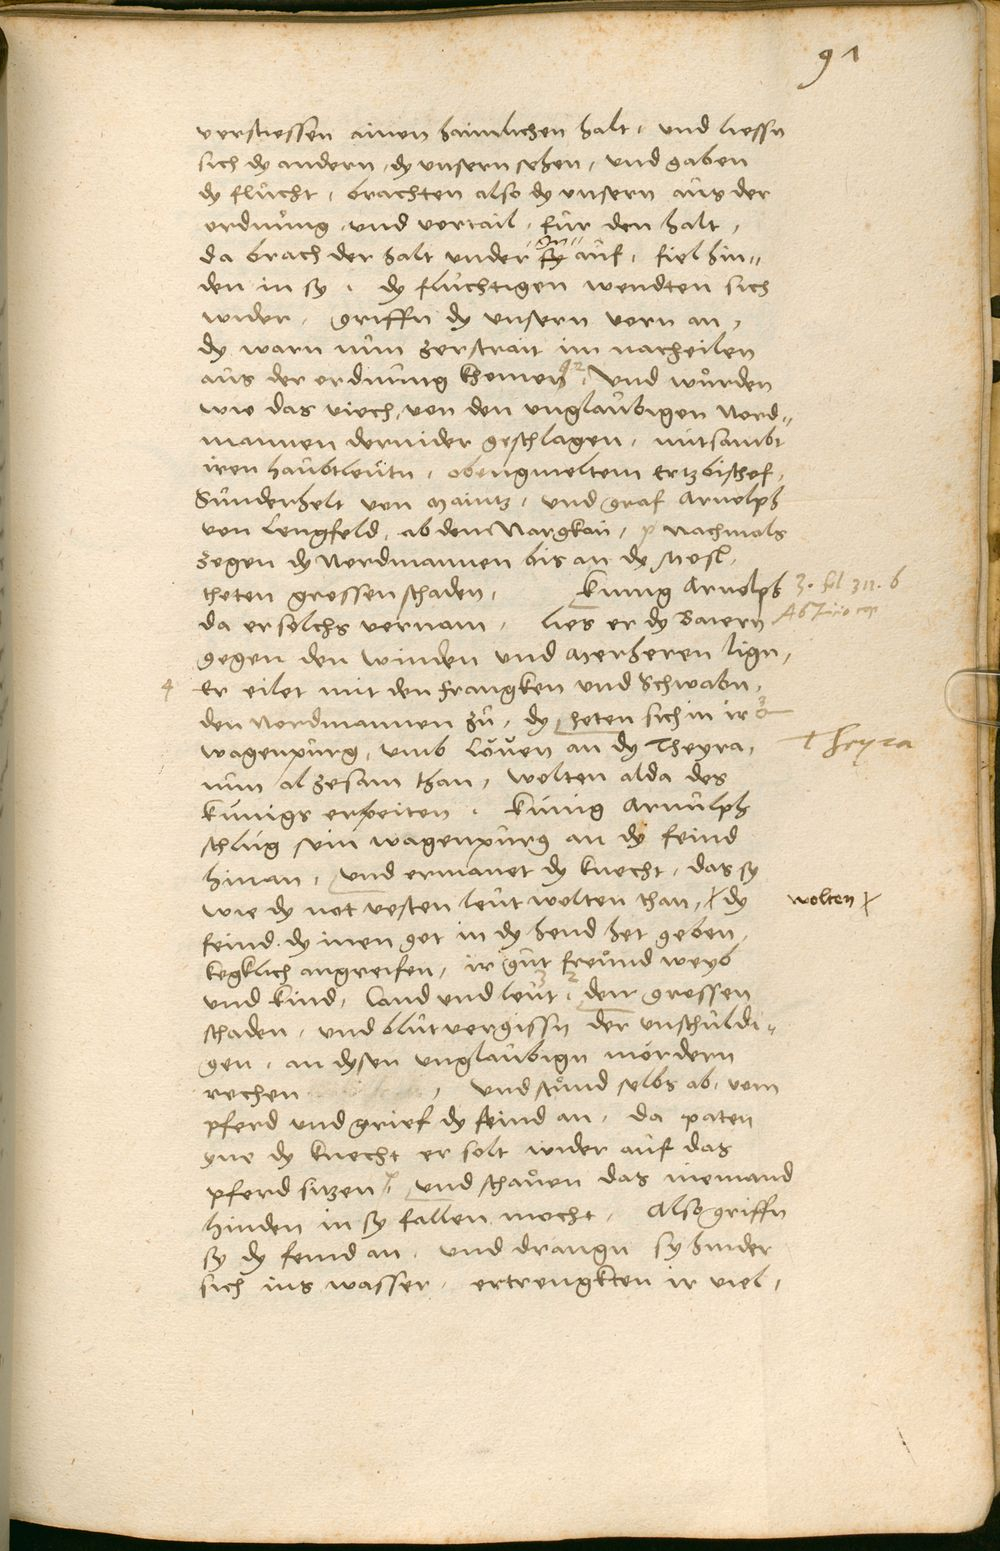 91
verstiessen ainen haimlichen halt, und liessn
sich dy andern, dy unsern sehen, und gaben
dy flucht, brachten also dy unsern aus der
ordnung und vortail, für den halt,
da brach der halt under sy auf, fiel hin〃
den in sy, dy fluchtigen wendten sich
wider, griffn dy unsern vorn an,
dy warn nun zerstrait im nacheilen
aus der ordnung khomen, und wurden
wie das viech, von den unglaubigen Nord〃
mannen dernider geschlagen, mitsambt
iren haubtleutn, obengmeltem ertzbischof,
Sunderhelt von Maintz, und graf Arnolph
von Lengfeld, ab dem Nargkau, nachmals
zogen dy Nordmannen bis an dy Mosl,
theten grossen schaden, Kunig Arnolph
da er solchs vernam, lies er dy Baiern
gegen den Winden und Merheren lign,
4 Er eilet mit den Frangken und Schwabn,
den Nordmannen zu, dy heten sich in ir
wagenpurg, umb Löven an dy Theyra,
Theyra
nun al zesam than, wolten alda des
kunigs erpeiten. Kunig Arnulph
schlug sein wagenpurg an dy feind
hinan, und ermanet dy knecht, das sy
wie dy not vesten leut wolten than, dy
wolten
feind dy inen got in dy hend het geben,
kegklich angreifen, ir gut freund weyb
und kind, land und leut, den grossen
schaden, und blutvergissn der unschuldi〃
gen, an dysen unglaubign mördern
rechen, und stuend selbs ab, vom
pferd und grief dy feind an, da paten
yne dy knecht er solt wider auf das
pferd sitzen, und schauen das niemand
hinden in sy fallen mocht, Also griffn
sy dy feind an, und drangn sy hinder
sich ins wasser, ertrengkten ir viel,